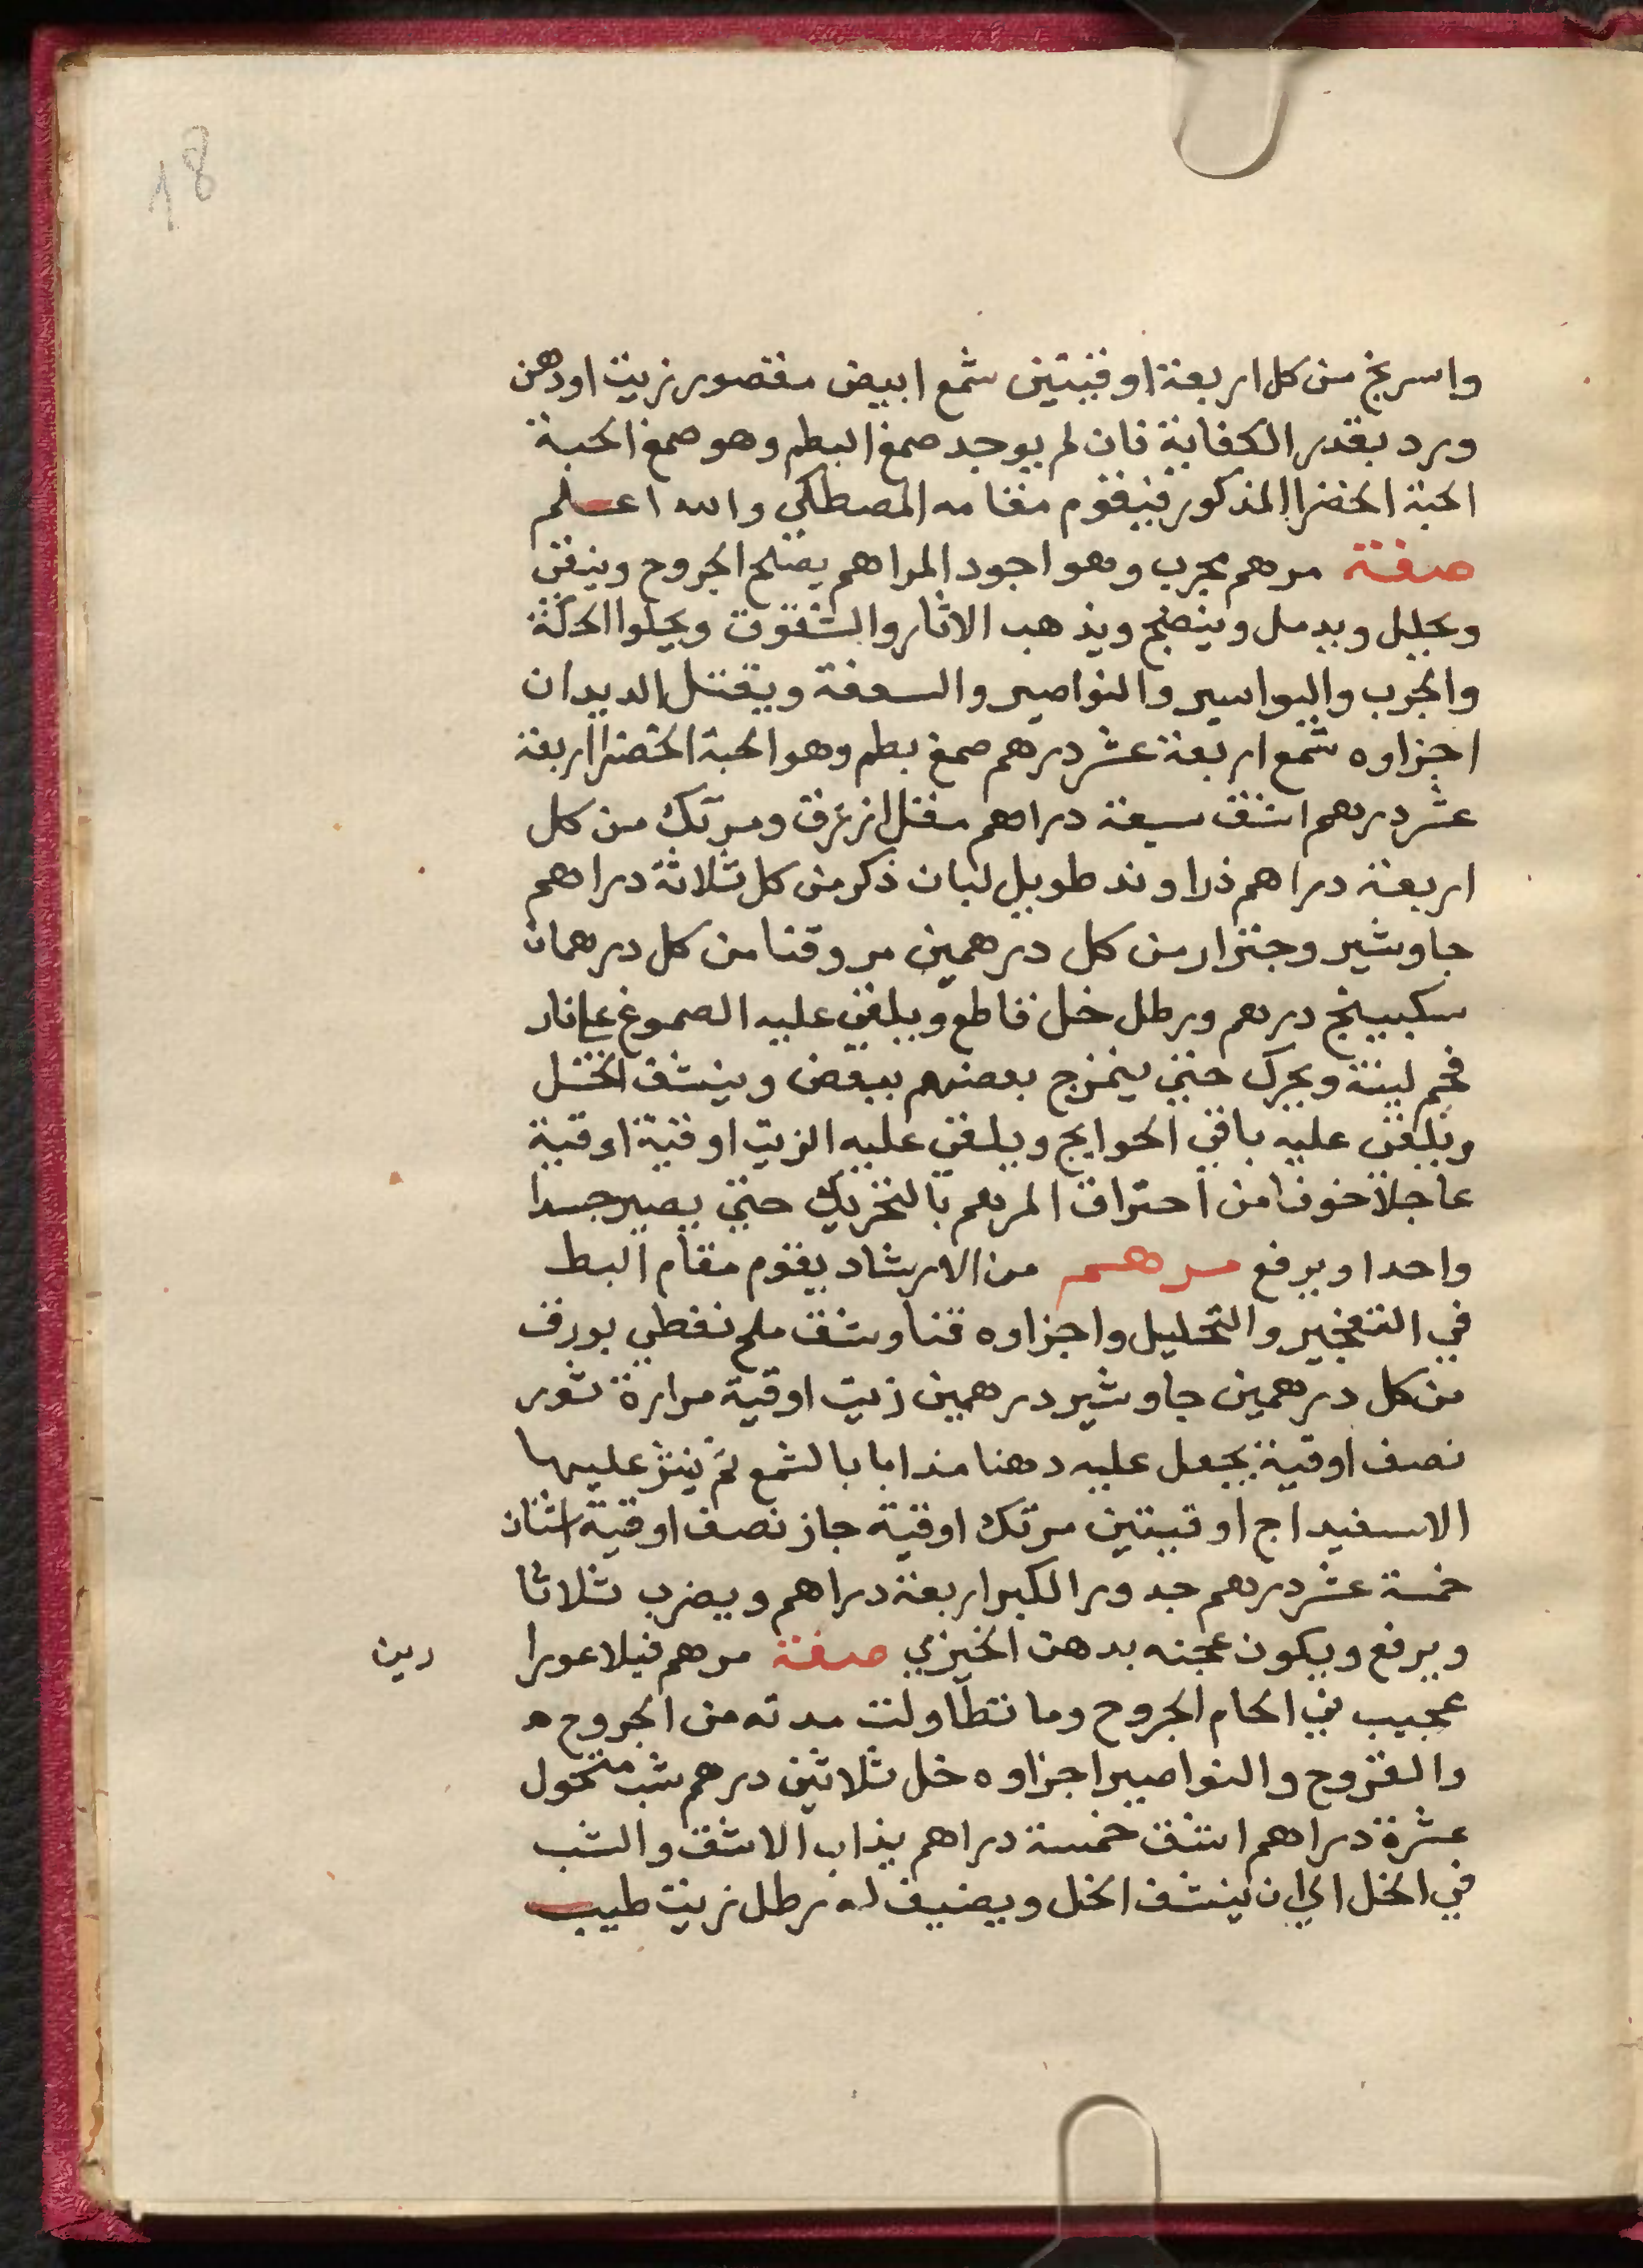 18
واسرنج من كل اربعة اوقيتين شمع ابيض مقصور زيت اودهن
ورد بقدر الكفاية فان لم يوجد صمغ البطم وهو صمغ الحبة
الحبة الخضرا المذكور فيقوم مقامه المصطكي والله اعلم
صفة مرهم مجرب وهو اجود المراهم يصلح الجروح وينقي
ويحلل ويدمل وينضج ويذهب الاثار والشقوق ويجلوا الحكة
والجرب والبواسير والنواصير والسعفة ويقتل الديدان
اجزاوه شمع اربعة عشر درهم صمغ بطم وهو الحبة الخضرا اربعة
عشر درهم اشق سبعة دراهم مقل ازرق ومرتك من كل
اربعة دراهم ذراوند طويل لبان ذكر من كل ثلاثة دراهم
جاوشير وجنزار من كل درهمين مر وقنا من كل درهمان
سكبينج درهم ورطل خل قاطع ويلقى عليه الصموغ على نار
فحم لينة ويحرك حتى يمتزج بعضهم ببعض وينشف الخل
ويلقى عليه باقي الحوايج ويلقى عليه الزيت اوقية اوقية
عاجلا خوفا من احتراق المرهم بالتحريك حتى يصير جسدا
واحدا ويرفع مرهم من الارشاد يقوم مقام البط
في التفجير والتحليل واجزاوه قنا وشق ملح نفطي بورق
من كل درهمين جاوشير درهمين زيت اوقية مرارة ثور
نصف اوقية يجعل عليه دهنا مذابا بالشمع ثم ينثر عليها
الاسفيداج اوقيتين مرتك اوقية جاز نصف اوقية اشنان
خمسة عشر درهم جدور الكبر اربعة دراهم ويضرب ثلاثا
ويرفع ويكون عجنه بدهن الخيري صفة مرهم فيلاعورا
رين
عجيب في الحام الجروح وما تطاولت مدته من الجروح ه
والقروح والنواصير اجزاوه خل ثلاثين درهم شب منخول
عشرة دراهم اشق خمسة دراهم يذاب الاشق والشب
في الخل الى ان ينشف الخل ويضيف له رطل زيت طيب